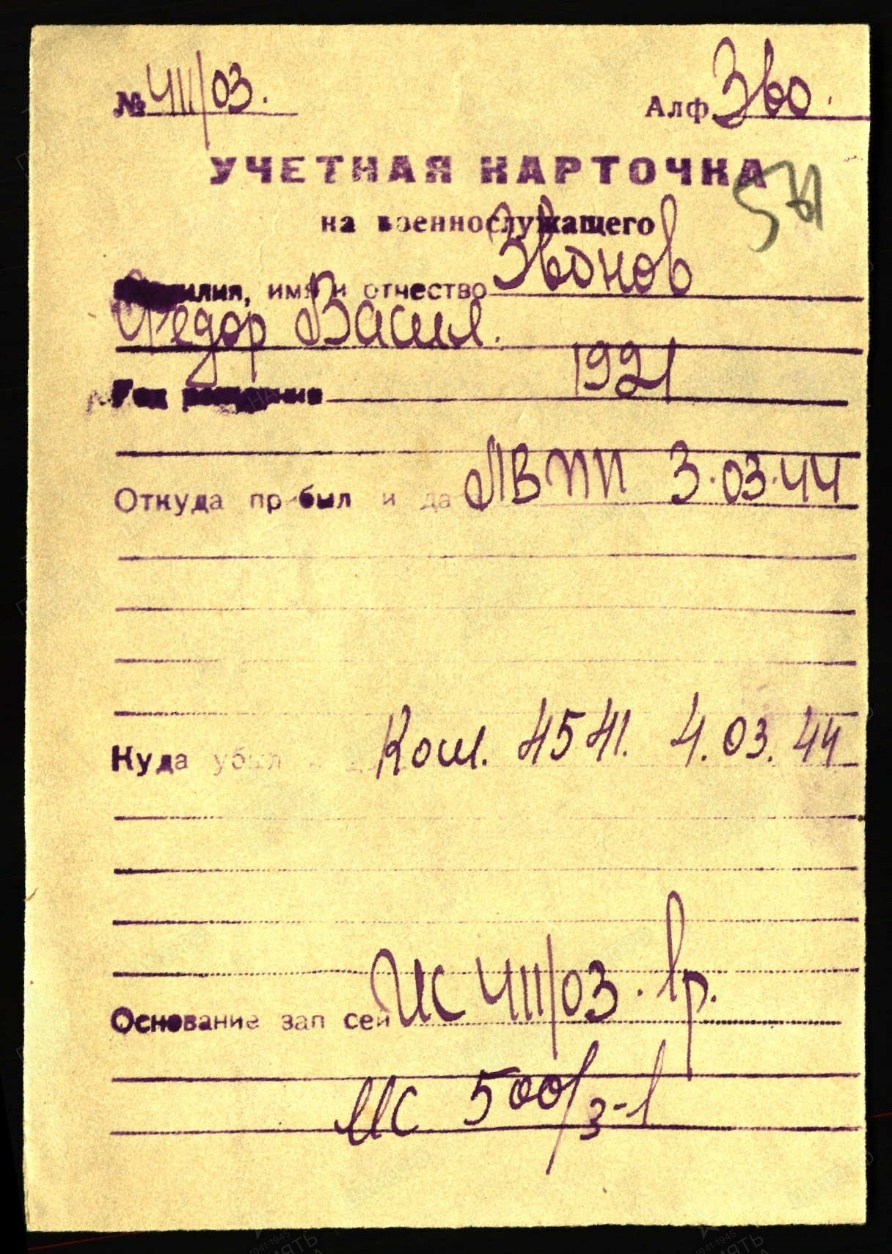 № 411/03. Алф. Зво.
УЧЕТНАЯ КАРТОЧКА
на военнослужащего
Фамилия, имя и отчество Звонов
Федор Васил.
Год рождения 1921
Откуда прибыл и да ЛВПП 3.03.44
Куда убыл Кош. 4541. 4.03.44
Основание записей ИС 411/03.
ИС 500/3-1